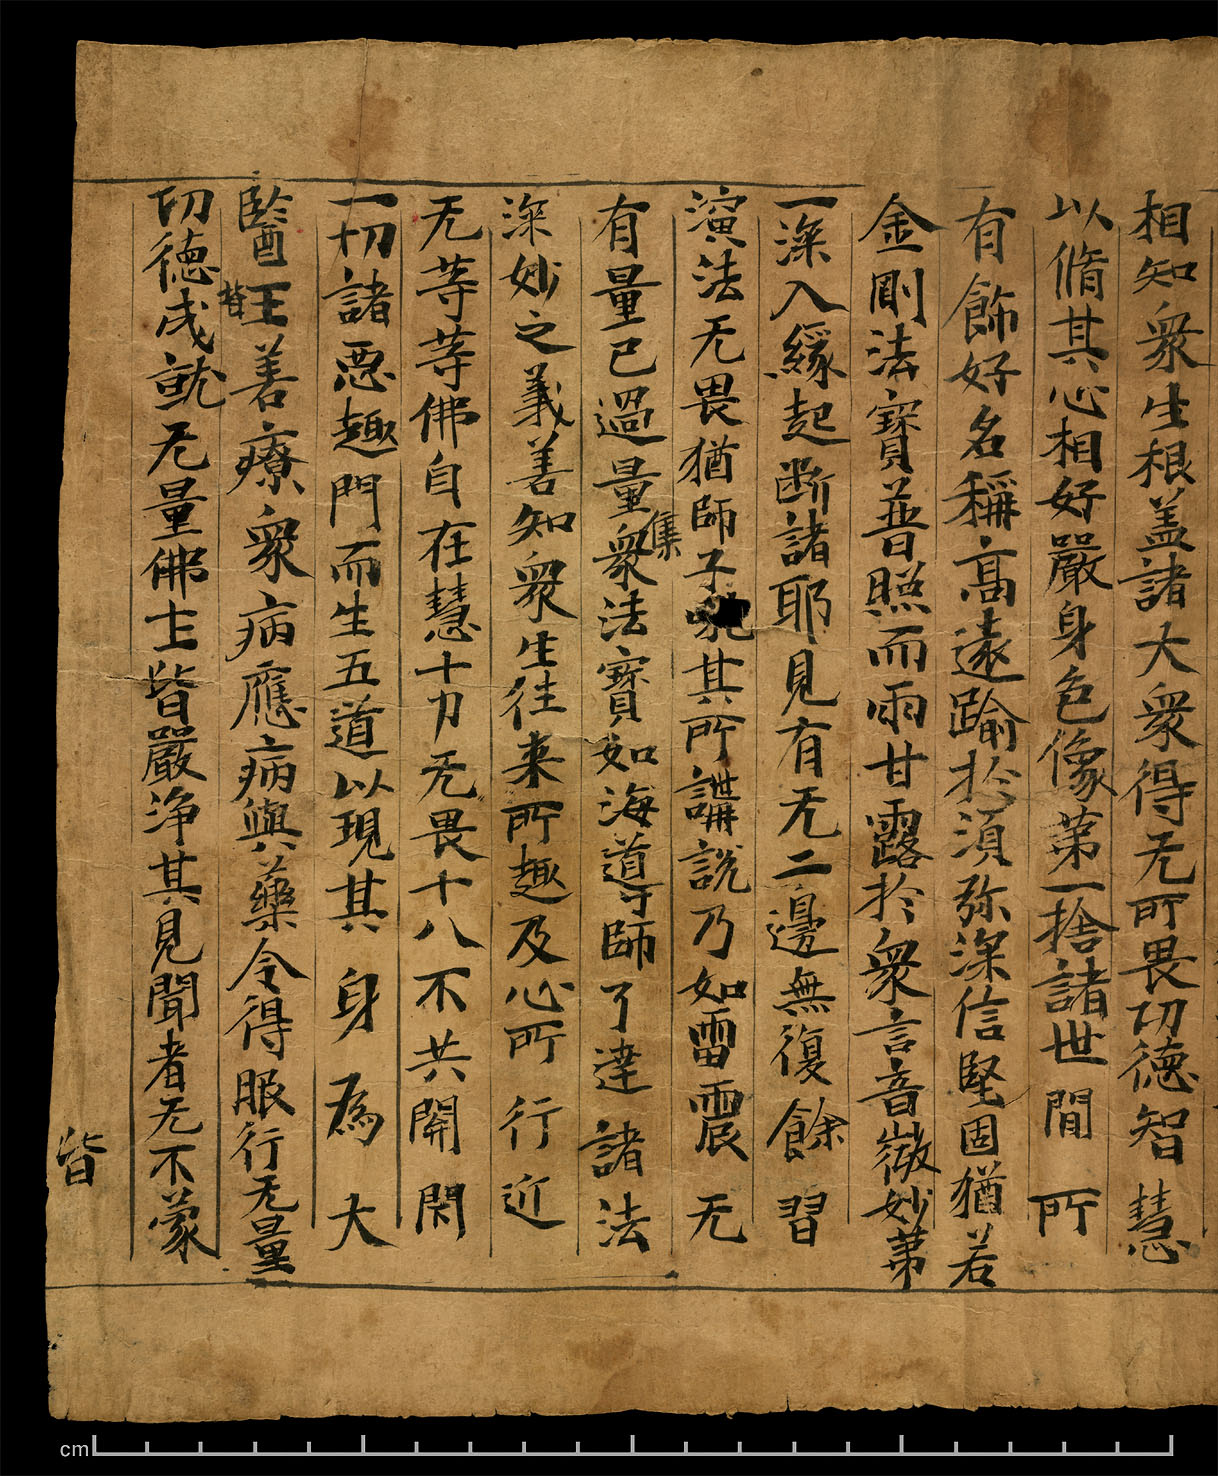 相知衆生根盖諸大衆得无所畏功德智慧
以脩其心相好嚴身色像苐一捨諸世間所
有飾好名稱高遠踰於湏弥深信堅固猶若
金剛法寶普照而雨甘露於衆言音微妙苐
一深入緣起断諸耶見有无二邊無復餘習
演法无畏猶師子吼其所講說乃如雷震无
有量已過量集衆法寶如海導師了達諸法
深妙之義善知衆生往来所趣及心所行近
无等等佛自在慧十力无畏十八不共開閇
一切諸惡趣門而生五道以現其身為大
醫王善療衆病應病與藥令得服行无量
功德皆成就无量佛土皆嚴净其見聞者无不蒙
皆
cm